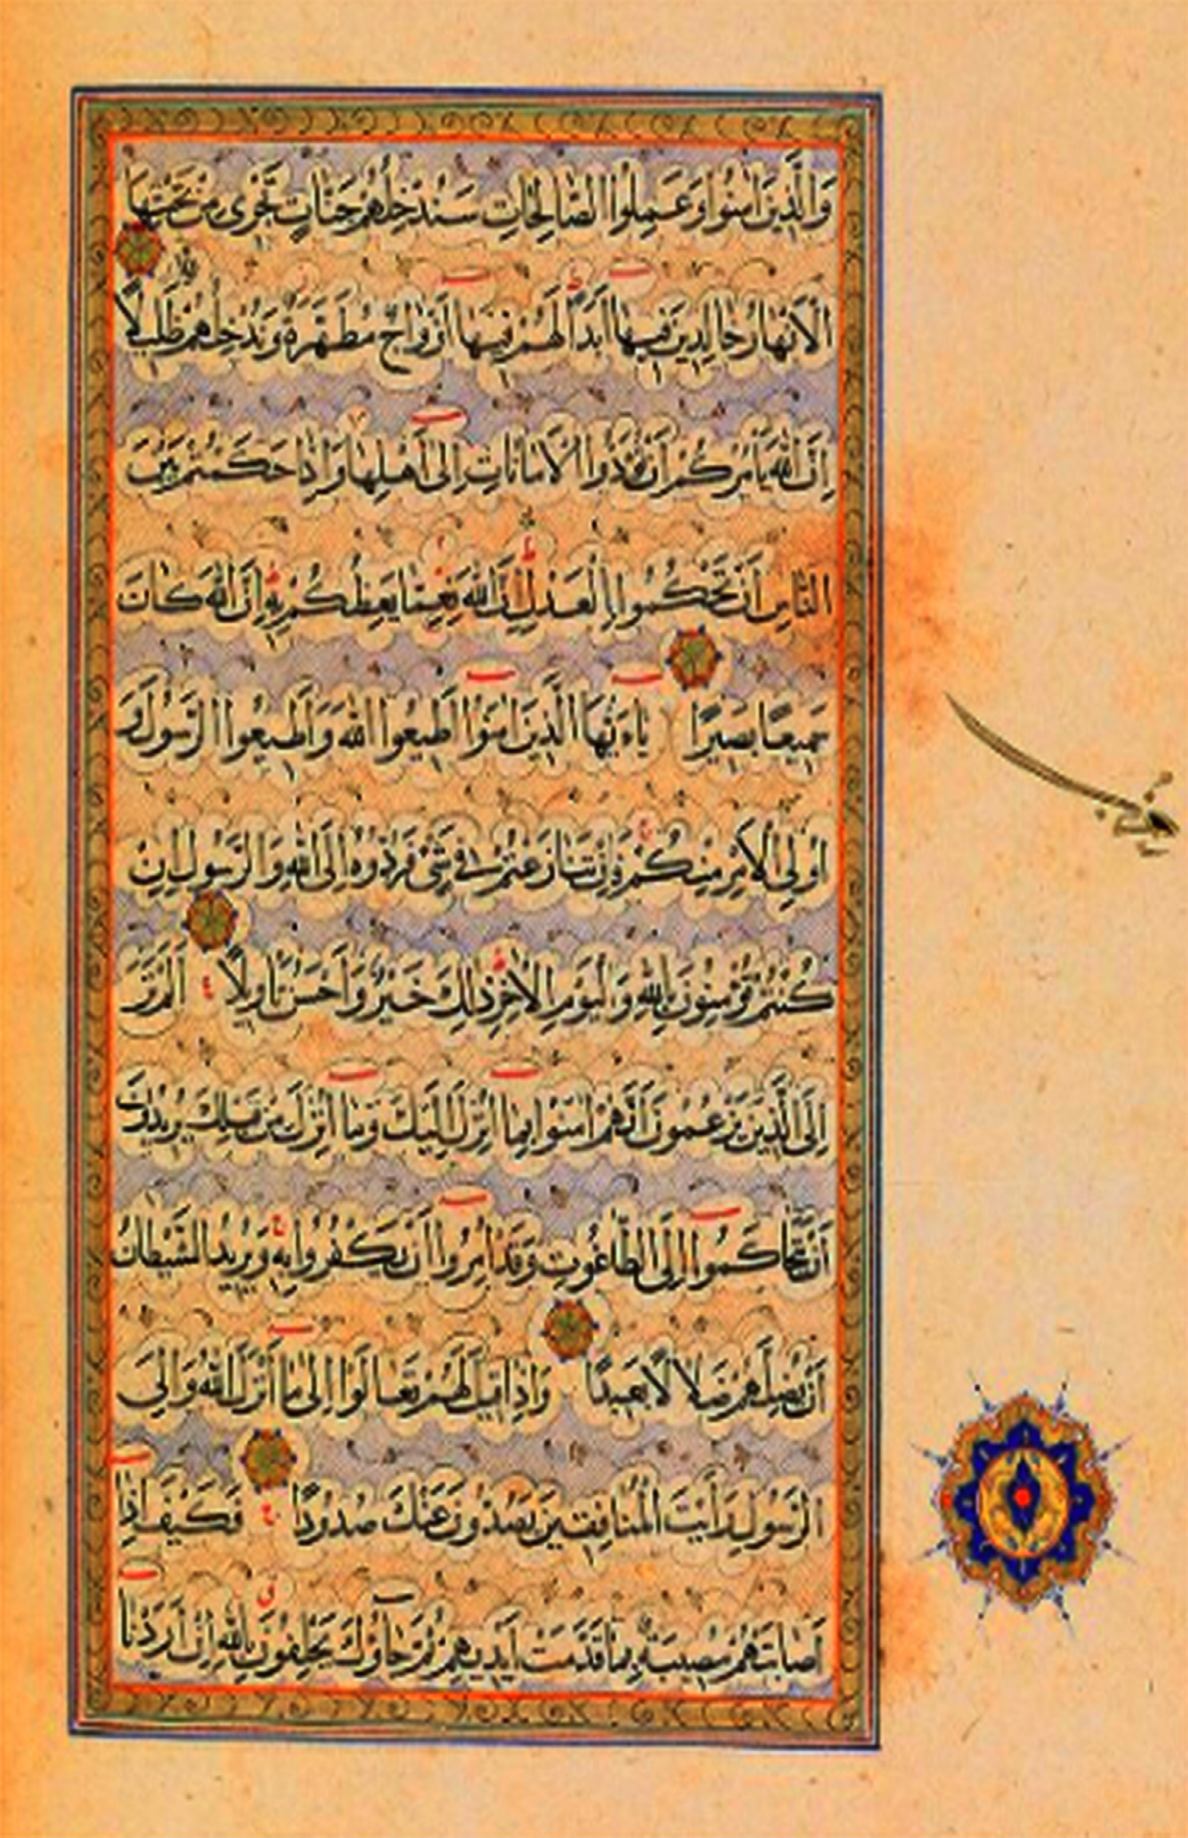 وَالَّذِينَ اٰمَنُوا وَعَمِلُوا الصَّالِحَاتِ سَنُدْخِلُهُمْ جَنَّاتٍ تَجْرِى مِنْ تَحْتِهَا
الْاَنْهَارُ خَالِدِينَ فِيهَا اَبَدًا لَهُمْ فِيهَا اَزْوَاجٌ مُطَهَّرَةٌ وَنُدْخِلُهُمْ ظِلًّا ظَلِيلًا
اِنَّ اللّٰهَ يَاْمُرُكُمْ اَنْ تُؤَدُّوا الْاَمَانَاتِ اِلٰى اَهْلِهَا وَاِذَا حَكَمْتُمْ بَيْنَ
النَّاسِ اَنْ تَحْكُمُوا بِالْعَدْلِ اِنَّ اللّٰهَ نِعِمَّا يَعِظُكُمْ بِهِ اِنَّ اللّٰهَ كَانَ
سَمِيعًا بَصِيرًا يَاءَيُّهَا الَّذِينَ اٰمَنُوا اَطِيعُوا اللّٰهَ وَاَطِيعُوا الرَّسُولَ وَ
اُولِى الْاَمْرِ مِنْكُمْ فَاِنْ تَنَازَعْتُمْ فِى شَىْءٍ فَرُدُّوهُ اِلَى اللّٰهِ وَالرَّسُولِ اِنْ
كُنْتُمْ تُؤْمِنُونَ بِاللّٰهِ وَالْيَوْمِ الْاٰخِرِ ذٰلِكَ خَيْرٌ وَاَحْسَنُ تَاْوِيلًا اَلَمْ تَرَ
اِلَى الَّذِينَ يَزْعُمُونَ اَنَّهُمْ اٰمَنُوا بِمَا اُنْزِلَ اِلَيْكَ وَمَا اُنْزِلَ مِنْ قَبْلِكَ يُرِيدُونَ
اَنْ يَتَحَاكَمُوا اِلَى الطَّاغُوتِ وَقَدْ اُمِرُوا اَنْ يَكْفُرُوا بِهِ وَيُرِيدُ الشَّيْطَانُ
اَنْ يُضِلَّهُمْ ضَلَالًا بَعِيدًا وَاِذَا قِيلَ لَهُمْ تَعَالَوْا اِلٰى مَا اَنْزَلَ اللّٰهُ وَاِلَى
الرَّسُولِ رَاَيْتَ الْمُنَافِقِينَ يَصُدُّونَ عَنْكَ صُدُودًا فَكَيْفَ اِذَا
اَصَابَتْهُمْ مُصِيبَةٌ بِمَا قَدَّمَتْ اَيْدِيهِمْ ثُمَّ جَاؤُكَ يَحْلِفُونَ بِاللّٰهِ اِنْ اَرَدْنَا